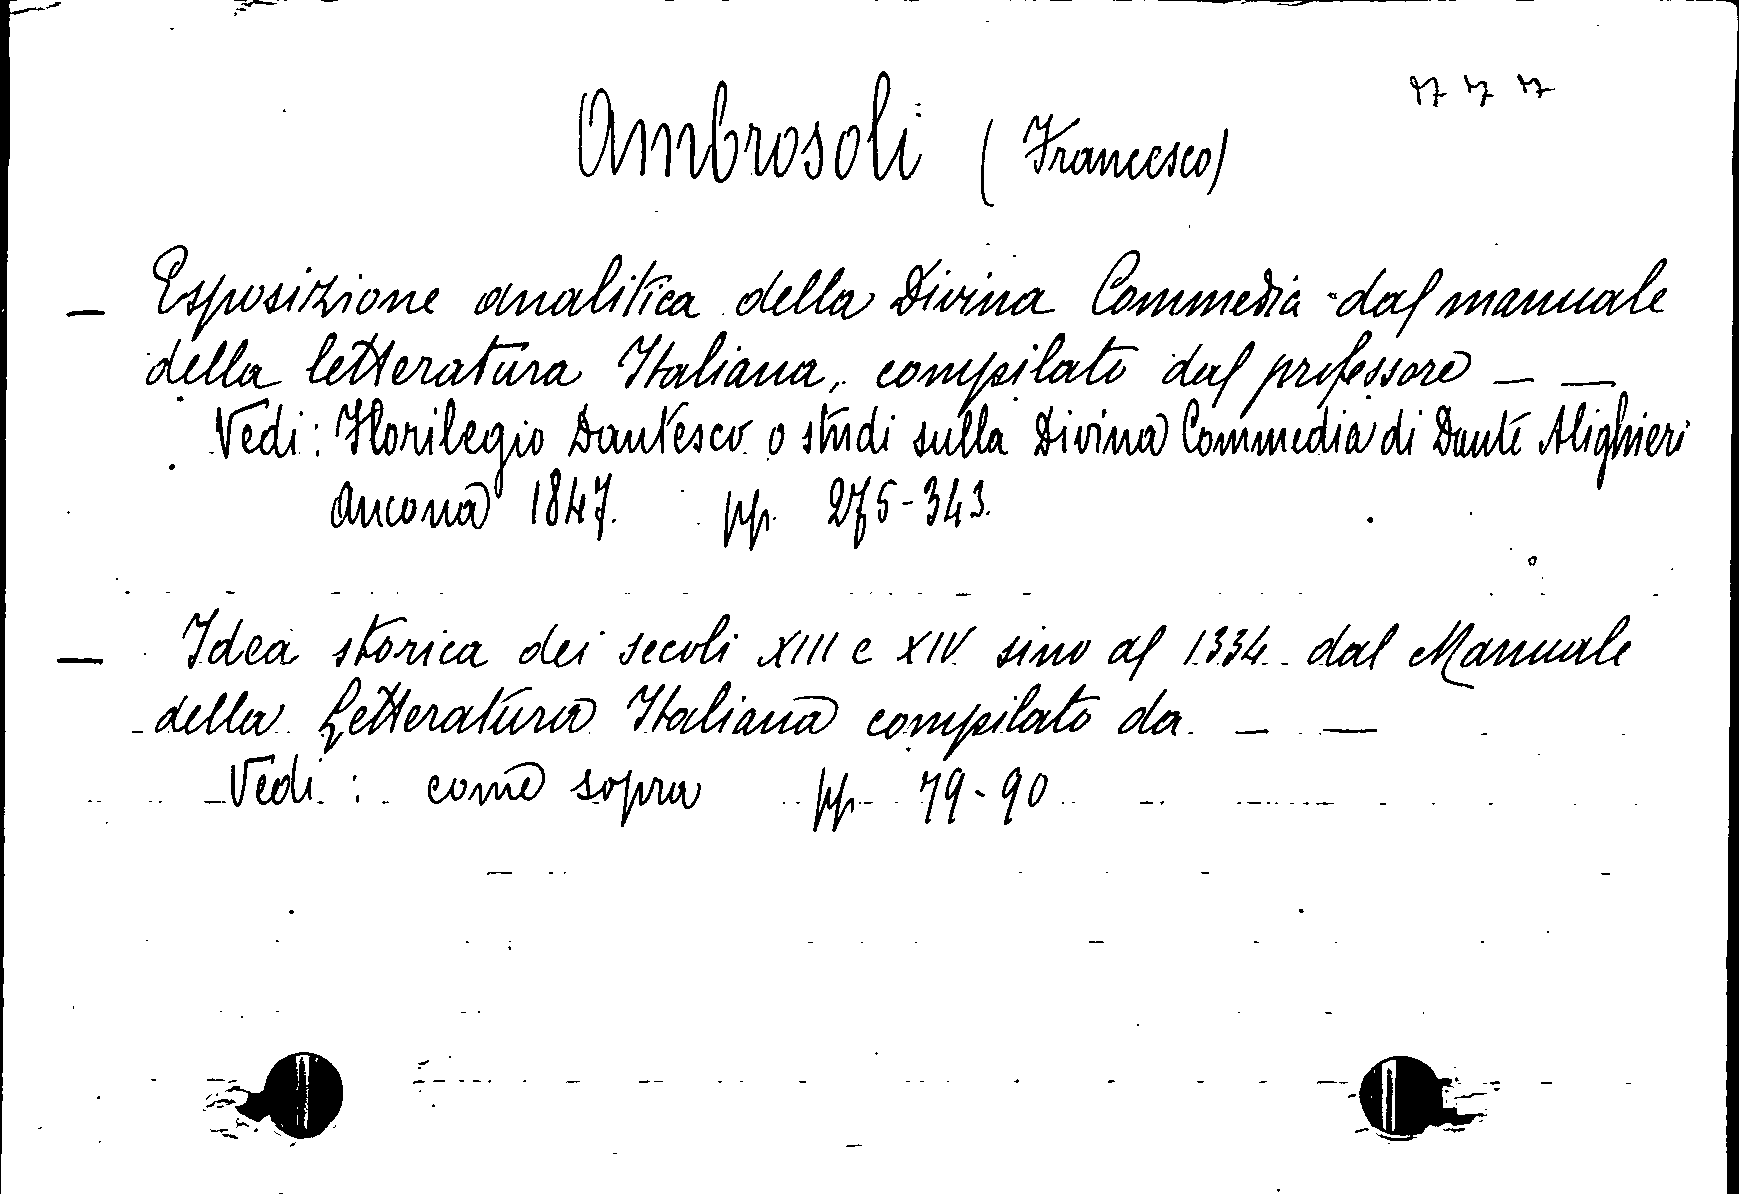 777
Ambrosoli (Francesco)
— Esposizione analitica della Divina Commedia - dal manuale
della letteratura Italiana, compilato dal professore — —
Vedi: Florilegio Dantesco o studi sulla Divina Commedia di Dante Alighieri
Ancona 1847. pp. 275-343.
— Idea storica dei secoli XIII e XIV sino al 1334. dal Manuale
della Letteratura Italiana compilato da — —
Vedi: come sopra pp. 79-90